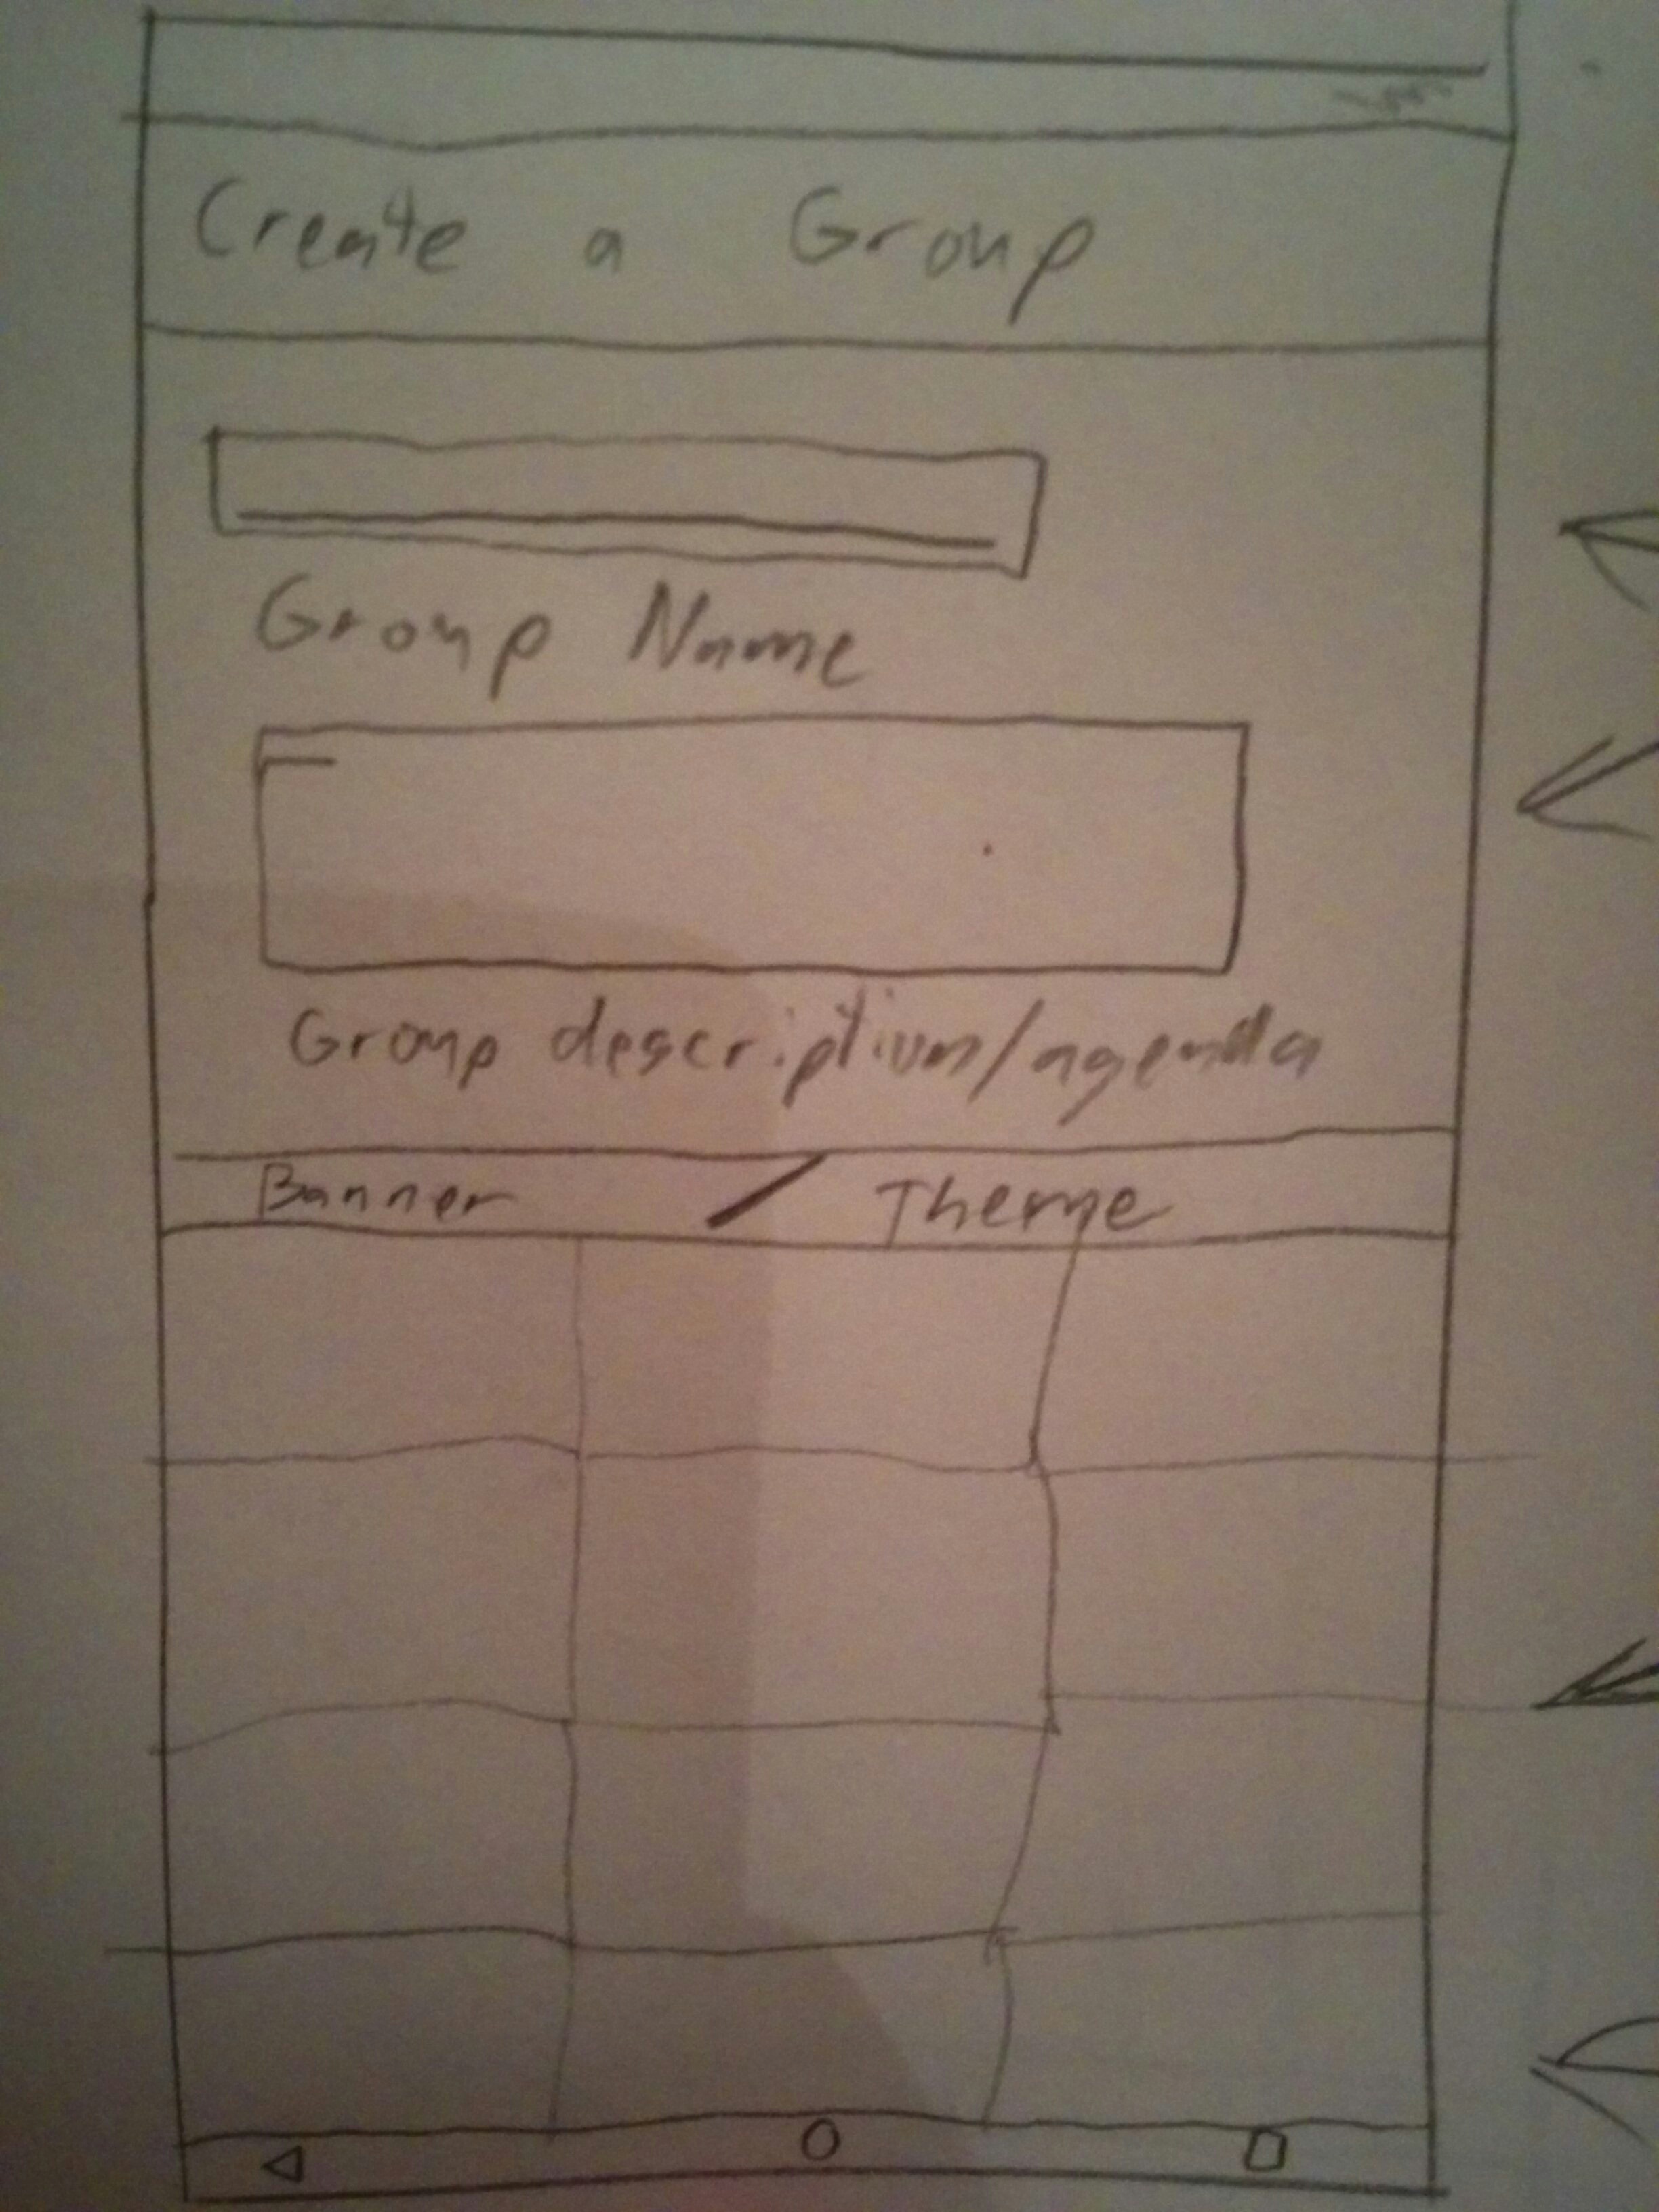 Create a Group
Group Name
Group description/agenda
Banner / Theme